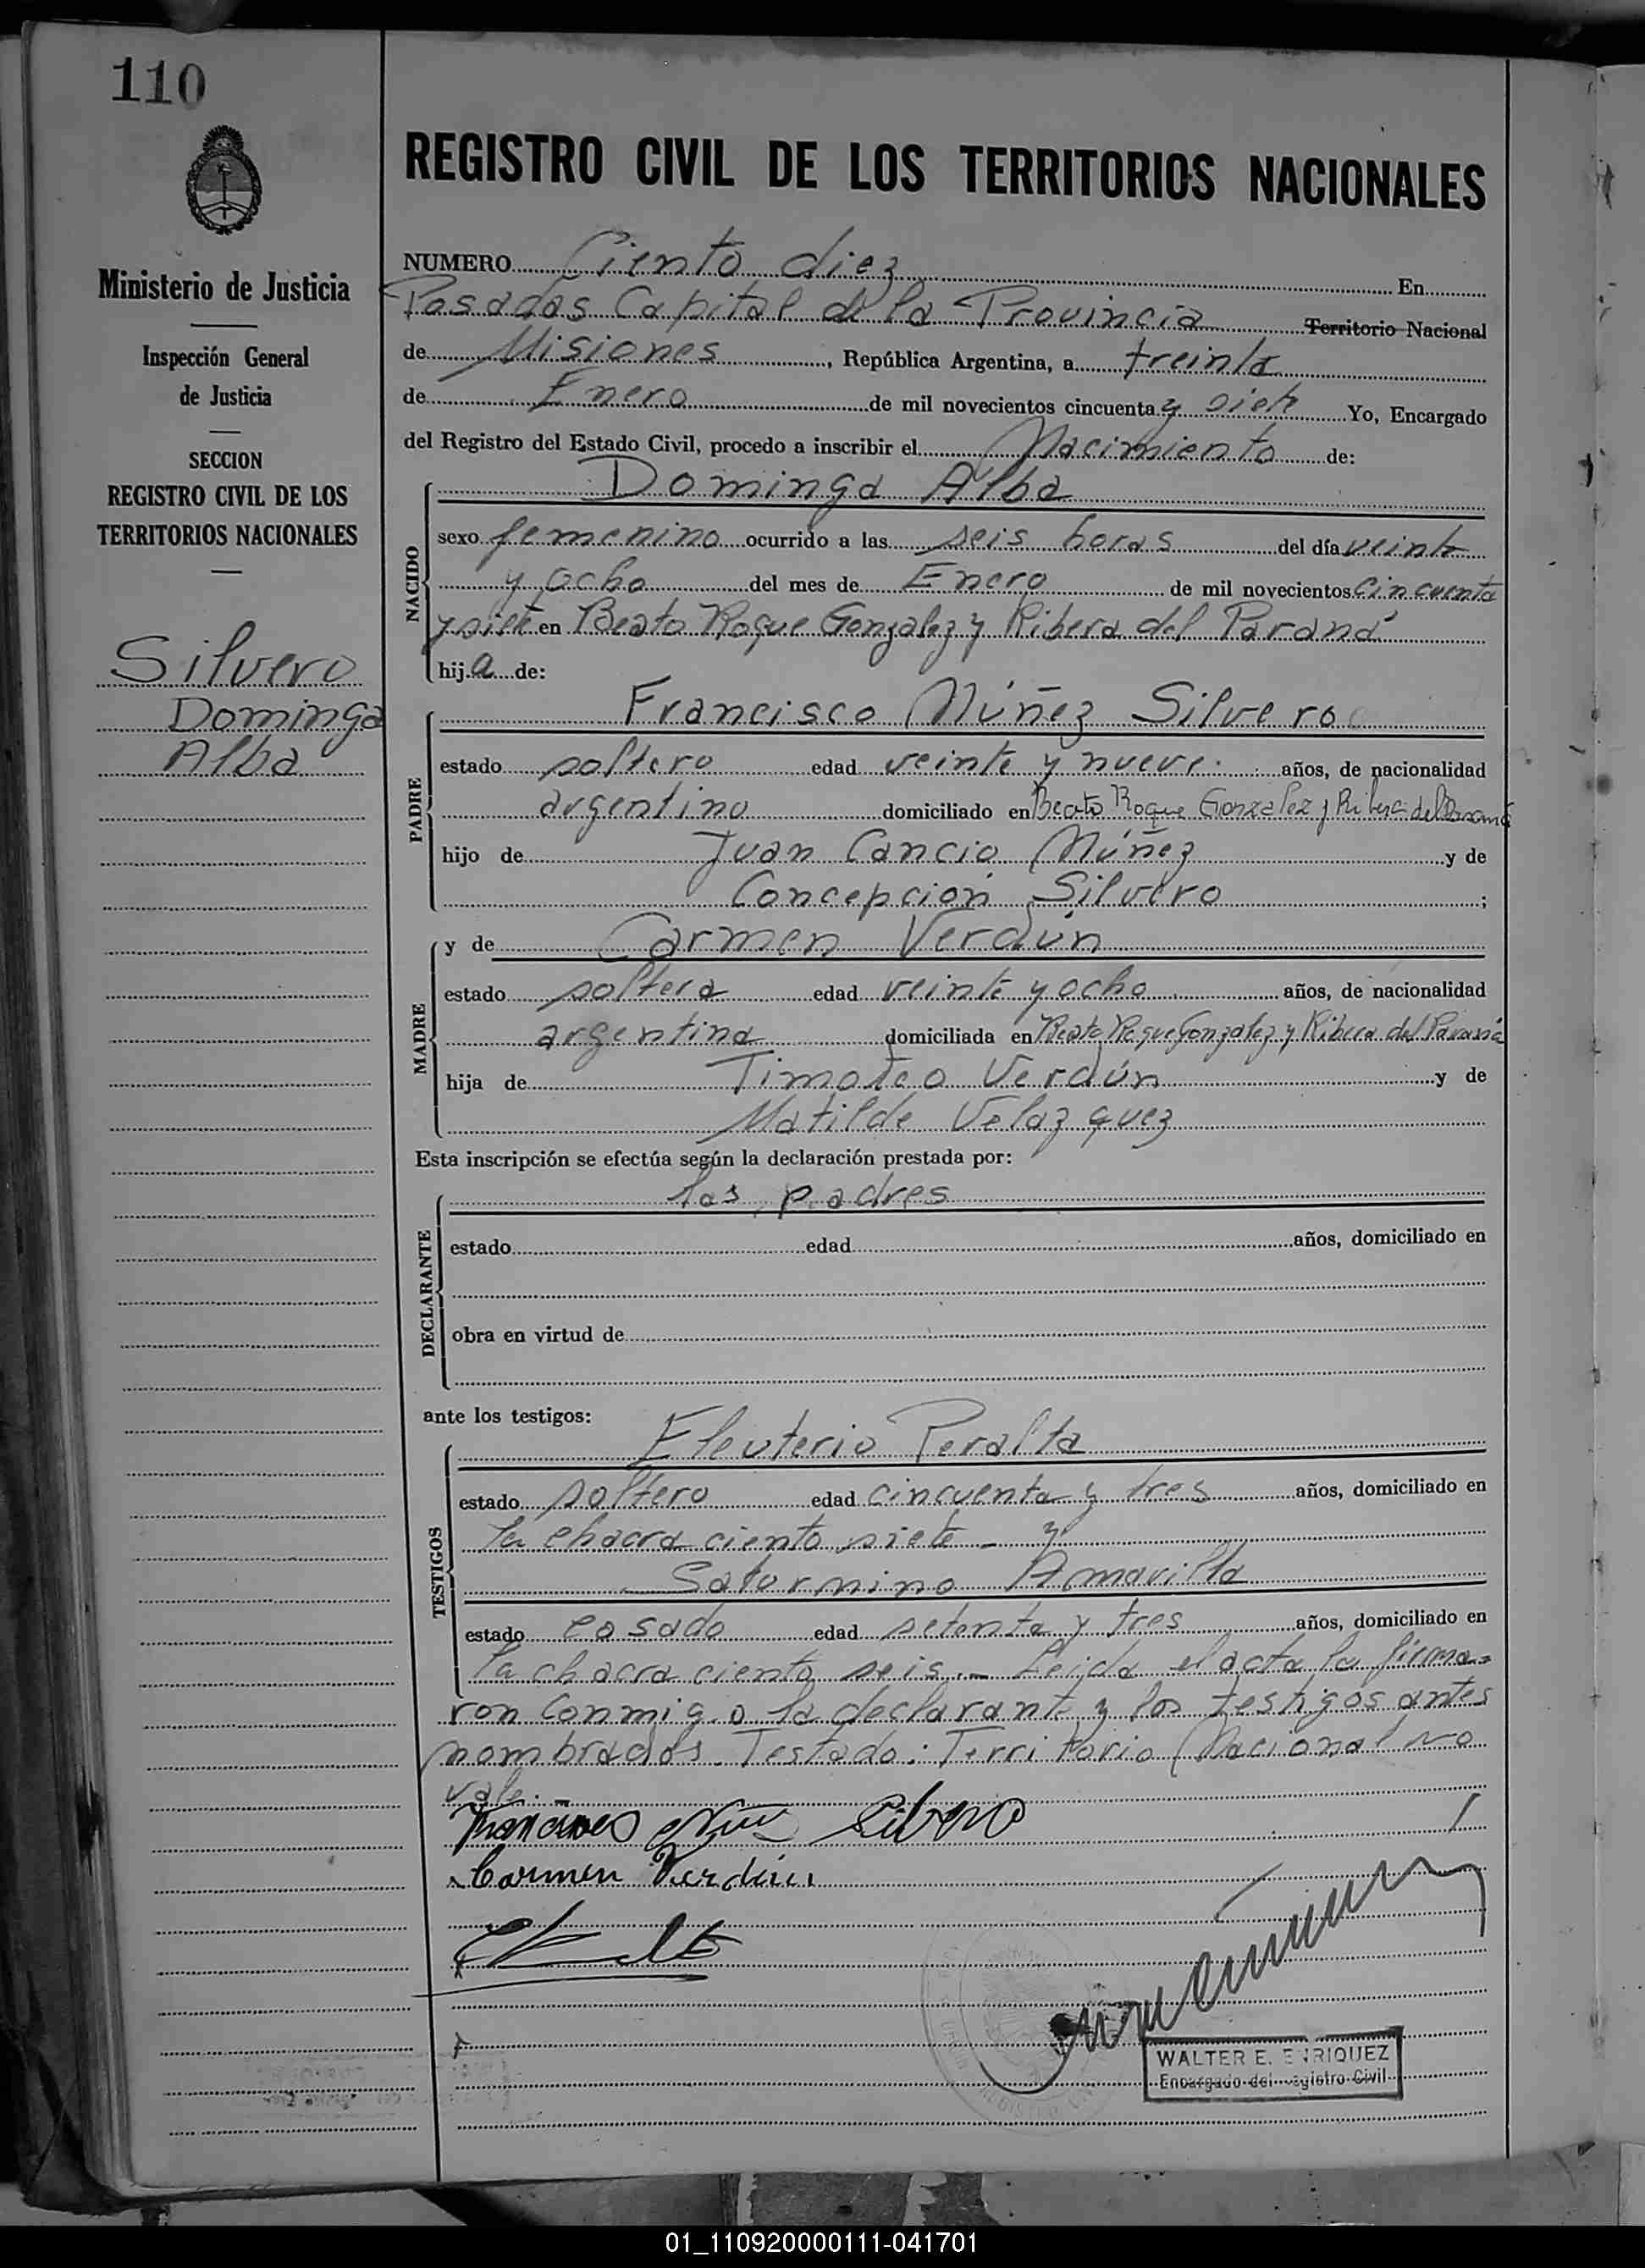 110
REGISTRO CIVIL DE LOS TERRITORIOS NACIONALES
Ministerio de Justicia
Inspección General
de Justicia
SECCION
REGISTRO CIVIL DE LOS
TERRITORIOS NACIONALES
Silvero
Dominga
Alba
NUMERO Ciento diez En
Posadas Capital de la Provincia Territorio Nacional
de Misiones, República Argentina, a treinta
de Enero de mil novecientos cincuenta y siete Yo, Encargado
del Registro del Estado Civil, procedo a inscribir el Nacimiento de:
NACIDO
Dominga Alba
sexo femenino ocurrido a las seis horas del día veinte
y ocho del mes de Enero de mil novecientos cincuenta
y siete en Beato Roque Gonzalez y Ribera del Paraná
hija de:
PADRE
Francisco Núñez Silvero
estado soltero edad veinte y nueve años, de nacionalidad
argentino domiciliado en Beato Roque Gonzalez y Ribera del Paraná
hijo de Juan Cancio Núñez y de
Concepción Silvero;
MADRE
y de Carmen Verdún
estado soltera edad veinte y ocho años, de nacionalidad
argentina domiciliada en Beato Roque Gonzalez y Ribera del Paraná
hija de Timoteo Verdún y de
Matilde Velazquez
Esta inscripción se efectúa según la declaración prestada por:
DECLARANTE
los padres
estado edad años, domiciliado en
obra en virtud de
ante los testigos:
TESTIGOS
Eleuterio Peralta
estado soltero edad cincuenta y tres años, domiciliado en
la chacra ciento siete - y
Saturnino Amarilla
estado casado edad setenta y tres años, domiciliado en
la chacra ciento seis.- Leida el acta la firma=
ron conmigo la declarante y los testigos antes
nombrados. Testado: Territorio Nacional no
vale.-
Silvero
Carmen Verdún
WALTER E. ENRIQUEZ
Encargado del Registro Civil
01_110920000111-041701